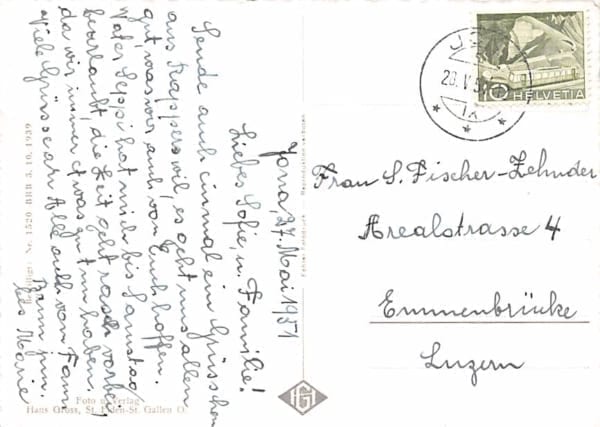 Jona, 27. Mai 1951
Liebes Sofie, u. Familie!
Sende auch einmal ein Grüsschen
aus Rapperswil, es geht uns allen
gut, was wir auch von Euch hoffen.
Vater Seppi hat mich bis Samstag
beurlaubt, die Zeit geht rasch vorbei,
da wir immer etwas zu tun haben.
Viele Grüsse an All auch von Fam.
Baum jun.
Marie
Frau S. Fischer-Zehnder
Arealstrasse 4
Emmenbrücke
Luzern
HELVETIA
Nr. 1520 BRB 3.10.1939
Foto u. Verlag
Hans Gross, St. Fiden-St. Gallen O.
HG